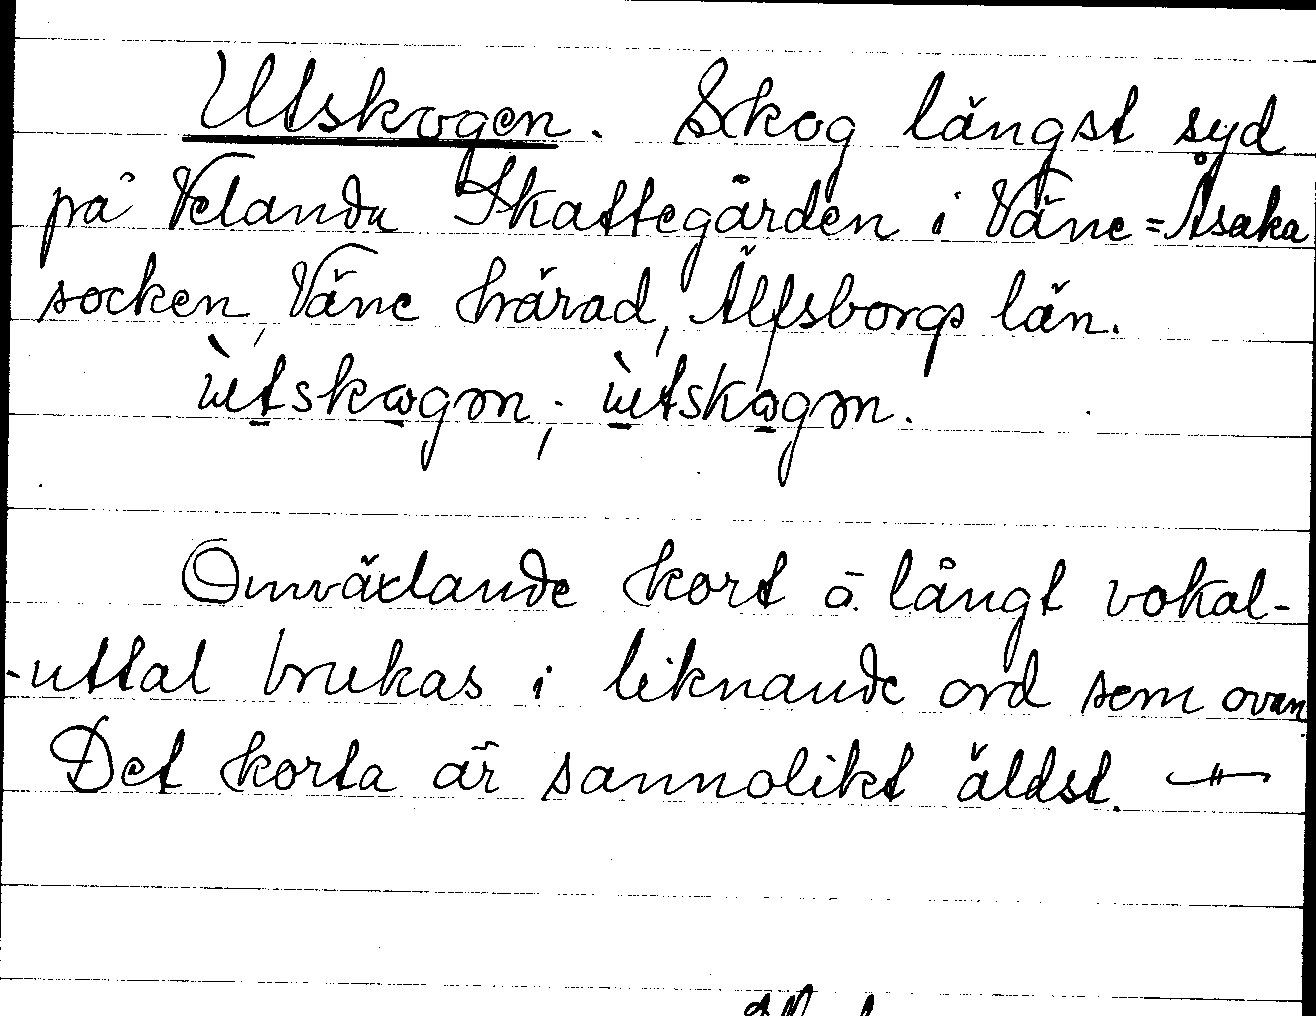 Utskogen. Skog längst syd
på Velanda Skattegården i Väne=Åsaka
socken, Väne härad, Älfsborgs län.
ùtskogən; ùtskogən.
Omväxlande kort o. långt vokal-
-uttal brukas i liknande ord som ovan
Det korta är sannolikt äldst.